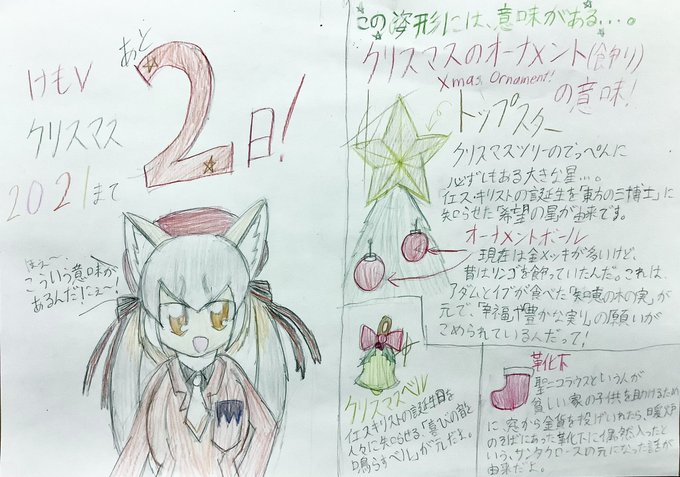 けもV
クリスマス
2021まで
あと
2
日!
ほぇ〜、
こういう意味が
あるんだにぇ〜!
この姿形には、意味がある…。
クリスマスのオーナメント(飾り)
Xmas Ornament!
の意味!
トップスター
クリスマスツリーのてっぺんに
必ずしもある大きな星…。
イエス・キリストの誕生を「東方の三博士」に
知らせた「希望の星」が由来です。
オーナメントボール
現在は金メッキが多いけど、
昔はリンゴを飾っていたんだ。これは、
アダムとイブが食べた「知恵の木の実」が
元で、「幸福や豊かな実り」の願いが
こめられているんだって!
クリスマスベル
イエスキリストの誕生日を
人々に知らせる、「喜びの音を
鳴らすベル」が元だよ。
靴下
聖ニコラウスという人が
貧しい家の子供を助けるため
に、窓から金貨を投げいれたら、暖炉
のそばにあった靴下に偶然入ったと
いう、サンタクロースの元になった話が
由来だよ。